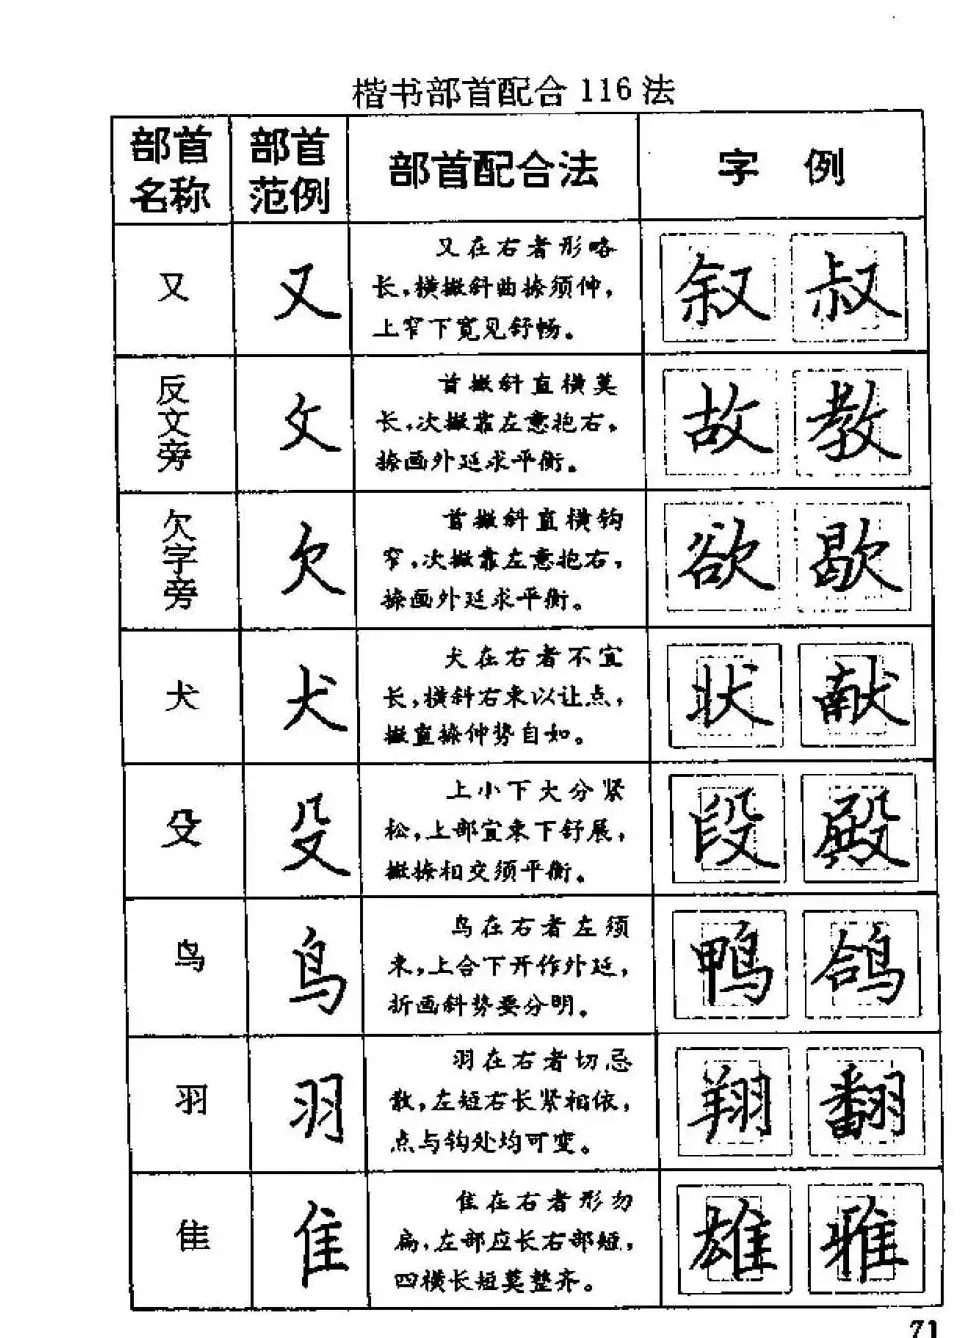 楷书部首配合116法
部首名称 部首范例 部首配合法 字例
又 又 又在右者形略 叙 叔
长,横撇斜曲捺须伸,
上窄下宽见舒畅。
反文旁 攵 首撇斜直横莫 故 教
长,次撇靠左意抱右,
捺画外延求平衡。
欠字旁 欠 首撇斜直横钩 欲 歇
窄,次撇靠左意抱右,
捺画外延求平衡。
犬 犬 犬在右者不宜 状 献
长,横斜右束以让点,
撇直捺伸势自如。
殳 殳 上小下大分紧 段 殿
松,上部宜束下舒展,
撇捺相交须平衡。
鸟 鸟 鸟在右者左须 鸭 鸽
束,上合下开作外延,
折画斜势要分明。
羽 羽 羽在右者切忌 翔 翻
散,左短右长紧相依,
点与钩处均可变。
隹 隹 隹在右者形勿 雄 雅
扁,左部应长右部短,
四横长短莫整齐。
71